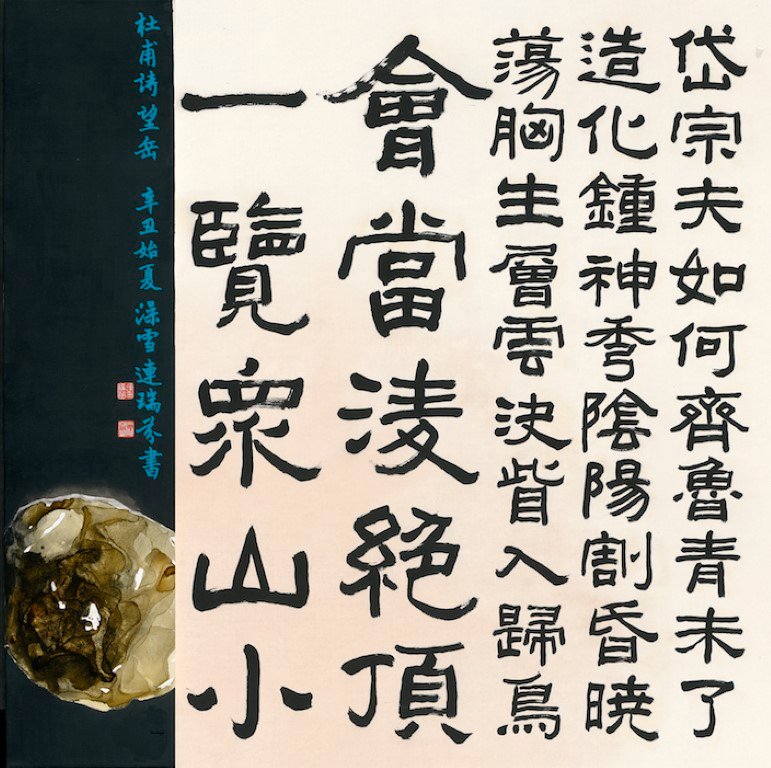 岱宗夫如何齊魯青未了
造化鍾神秀陰陽割昏曉
蕩胸生層雲決眥入歸鳥
會當淩絕頂
一覽眾山小
杜甫詩望岳 辛丑始夏 深雪連瑞芬書